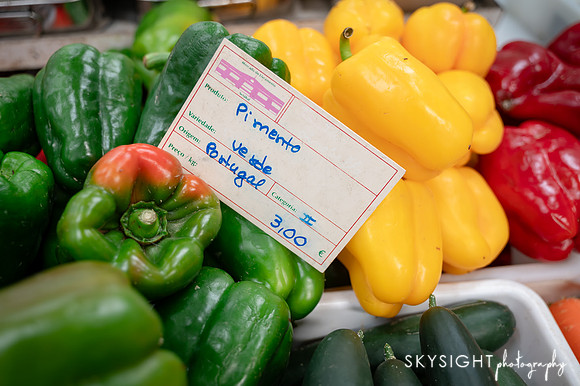 Produto:
Pimento
Variedade:
verde
Origem:
Portugal
Categoria:
II
Preço:
/kg:
3,00
€
SKYSIGHT photography